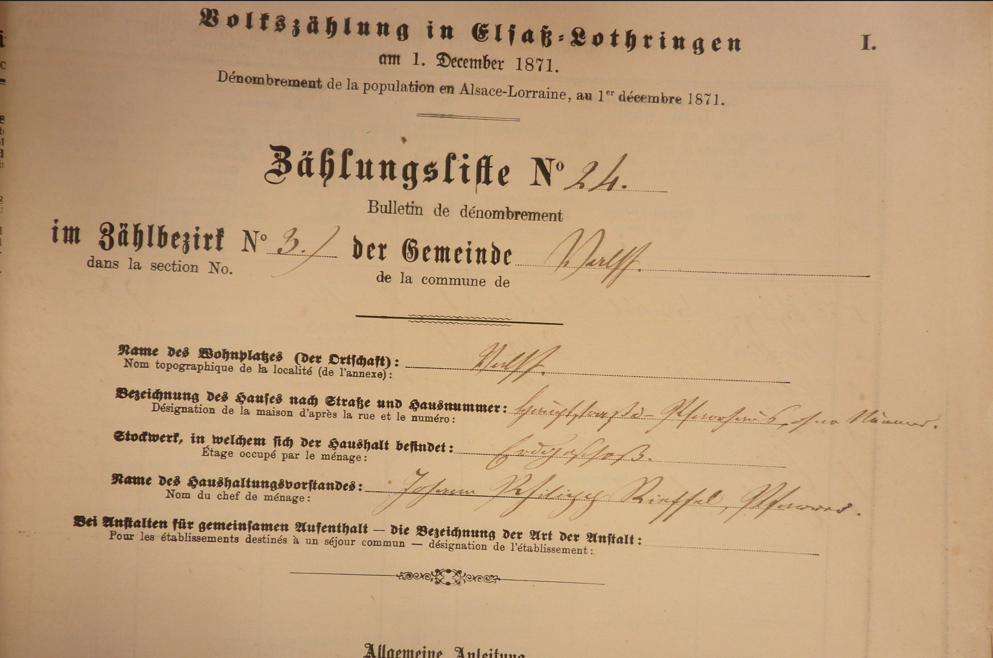 Volkszählung in Elsaß-Lothringen
I.
am 1. December 1871.
Dénombrement de la population en Alsace-Lorraine, au 1er décembre 1871.
Zählungsliste No 24.
Bulletin de dénombrement
im Zählbezirk No 3.) der Gemeinde
dans la section No. de la commune de
Name des Wohnplatzes (der Ortschaft):
Nom topographique de la localité (de l'annexe):
Bezeichnung des Hauses nach Straße und Hausnummer: Hauptstraße - Pfarrhaus, ohne Nummer.
Désignation de la maison d'après la rue et le numéro:
Stockwerk, in welchem sich der Haushalt befindet: Erdgeschoß.
Étage occupé par le ménage:
Name des Haushaltungsvorstandes: Johann Philipp Rieffel, Pfarrer.
Nom du chef de ménage:
Bei Anstalten für gemeinsamen Aufenthalt — die Bezeichnung der Art der Anstalt:
Pour les établissements destinés à un séjour commun — désignation de l'établissement:
Allgemeine Anleitung